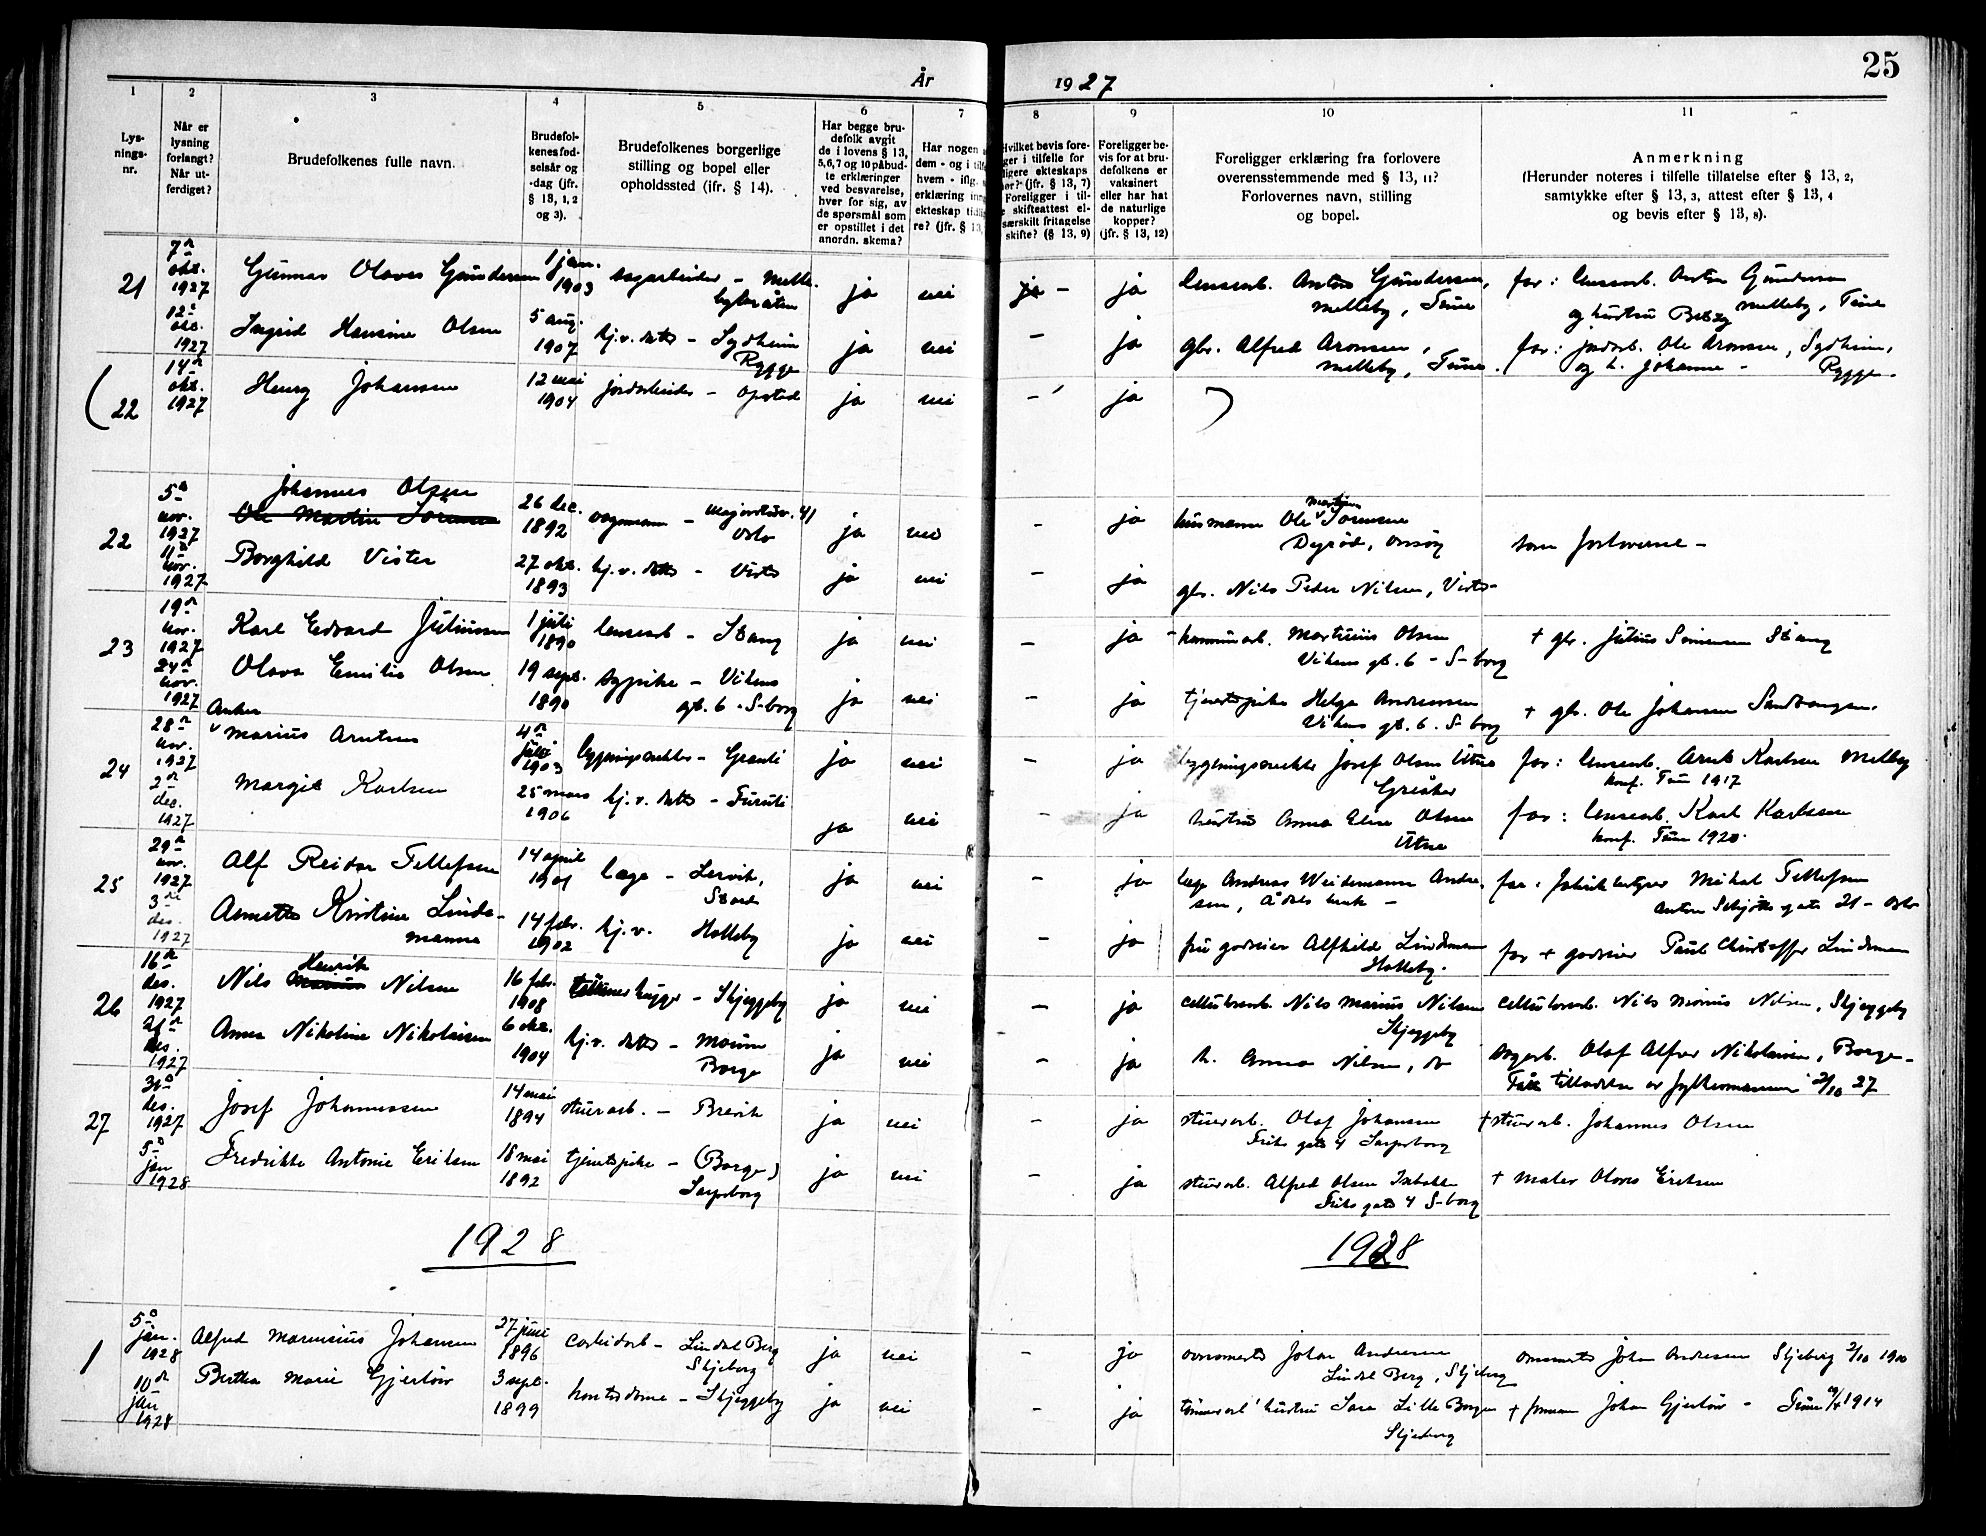 25
År 1927
1 2 3 4 5 6 7 8 9 10 11
Lys-
nings-
nr.
Når er
lysning
forlangt?
Når ut-
ferdiget?
Brudefolkenes fulle navn.
Brudefol-
kenes fød-
selsår og
-dag (jfr.
§ 13, 1, 2
og 3).
Brudefolkenes borgerlige
stilling og bopel eller
opholdssted (jfr. § 14).
Har begge bru-
defolk avgit
de i lovens § 13,
5, 6, 7 og 10 påbud-
te erklæringer
ved besvarelse,
hver for sig, av
de spørsmål som
er opstillet i det
anordn. skema?
Har nogen
dem - og i
hvem - iflg.
erklæring
ekteskap
re? (jfr. § 13,
Hvilket bevis fore-
ger i tilfelle for
ligere ekteskaps
hør? (jfr. § 13, 7)
Foreligger i til-
e skifteattest el-
særskilt fritagelse
skifte? (§ 13, 9)
Foreligger be-
vis for at bru-
defolkene er
vaksinert
eller har hat
de naturlige
kopper?
(jfr. § 13, 12)
Foreligger erklæring fra forlovere
overensstemmende med § 13, 11?
Forlovernes navn, stilling
og bopel.
Anmerkning
(Herunder noteres i tilfelle tillatelse efter § 13, 2,
samtykke efter § 13, 3, attest efter § 13, 4
og bevis efter § 13, 8).
21
7de
okt.
1927
Gunnar Olaves Gundersen
1 jan.
1903
sagarbeider - Melle-
ja nei ja - ja
lensearb. Anton Gundersen,
Melleby, Tune
far: lensearb. Anton Gundersen
og hustru Betzy Melleby, Tune
12te
okt.
1927
Ingrid Hansine Olsen
5 aug.
1907
hj.v. datter - Sydheim
Rygge
ja nei - ja
gbr. Alfred Aronsen,
Melleby, Tune.
far: jordarb. Ole Aronsen, Sydheim,
og h. Johanne - Rygge -
(22
14de
okt.
1927
Henry Johansen
12 mai
1904
jordarbeider - Opstad
ja nei - ja )
22
5te
nov.
1927
Johannes Olsen
Ole Martin Sørensen
26 dec.
1892
vognmann - Majorstuv. 41
Oslo
ja nei - ja
husmann Ole Martin Sørensen
Dyrød, Onsøy
som forloverne -
11te
nov.
1927
Borghild Vister
27 okt.
1893
hj.v. datter - Vister
ja nei - ja
gbr. Nils Peder Nilsen, Vister
23
19de
nov.
1927
Karl Edvard Juliussen
1 juli
1890
lensearb - Stang
ja nei - ja
kommunearb. Martinius Olsen
Vikens gt. 6 - S-borg
+ gbr. Julius Simensen Stang
24de
nov.
1927
Olava Emilie Olsen
19 sept.
1890
sypike - Vikens
gt. 6 - S-borg
ja nei - ja
tjenestepike Helga Andreassen
Vikens gt. 6. S-borg
+ gbr. Ole Johansen Sandtangen.
24
28de
nov.
1927
Anker
Marius Arntsen
4de
juli
1903
bygningssnekker - Granli
ja nei - ja
bygningssnekker Josef Olsen Utne
Greåker
far: lensearb. Arnt Karlsen Melleby
konf. Tune 1917
2de
dec.
1927
Margit Karlsen
25 mars
1906
hj.v. datter - Furuli
ja nei - ja
hustru Anna Elise Olsen
Utne
far: lensearb. Karl Karlsen
konf. Tune 1920.
25
29de
nov.
1927
Alf Reidar Tellefsen
14 april
1901
læge - Lervik,
Stord
ja nei - ja
læge Andreas Weidemann Andre-
sen, Ådals bruk -
far: fabrikbestyrer Mikal Tellefsen
Anton Schjøtts gate 21 - Oslo
3de
des.
1927
Annette Kristine Linde-
mann
14 febr.
1902
hj.v. Holleby
ja nei - ja
fru godseier Alfhild Lindeman
Holleby.
far + godseier Paul Christoffer Lindeman
26
16de
des.
1927
Nils Henrik Marius Nilsen
16 febr.
1908
tømmerhugger - Skjeggeby
ja nei - ja
cellulosearb. Nils Marius Nilsen
Skjeggeby
cellulosearb. Nils Marius Nilsen, Skjeggeby
21de
des.
1927
Anna Nikoline Nikolaisen
6 okt.
1904
hj.v. datter - Moum
Borge
ja nei - ja
h. Anna Nilsen, do
sagarb. Olaf Alfred Nikolaisen, Borge -
Fått tilladelse av fylkesmannen 3/10 27
27
30te
des.
1927
Josef Johannessen
14 mai
1894
stuerarb. - Brevik
ja nei - ja
stuerarb. Olaf Johansen
Frits gate 4 Sarpsborg
+ stuerarb. Johannes Olsen
5te
jan
1928
Fredrikke Antonie Eriksen
18 mai
1892
tjenestepike - (Borge)
Sarpsborg
ja nei - ja
stuerarb. Alfred Olsen Isebakke
Frits gate 4 S-borg
+ maler Olaves Eriksen
1928 1928
1
5te
jan.
1928
Alfred Marensius Johansen
27 juni
1896
carbidarb - Lindal Berg
Skjeberg
ja nei - ja
ovnsmester Johan Andresen
Lindal Berg, Skjeberg
ovnsmester Johan Andresen Skjeberg 2/10 1910
10de
jan
1928
Bertha Marie Gjerløw
3 sept.
1899
kontordame - Skjeggeby
ja nei - ja
tømmerarb' hustru Sara Lille Borge
Skjeberg
+ formann Johan Gjerløw - Tune 1914